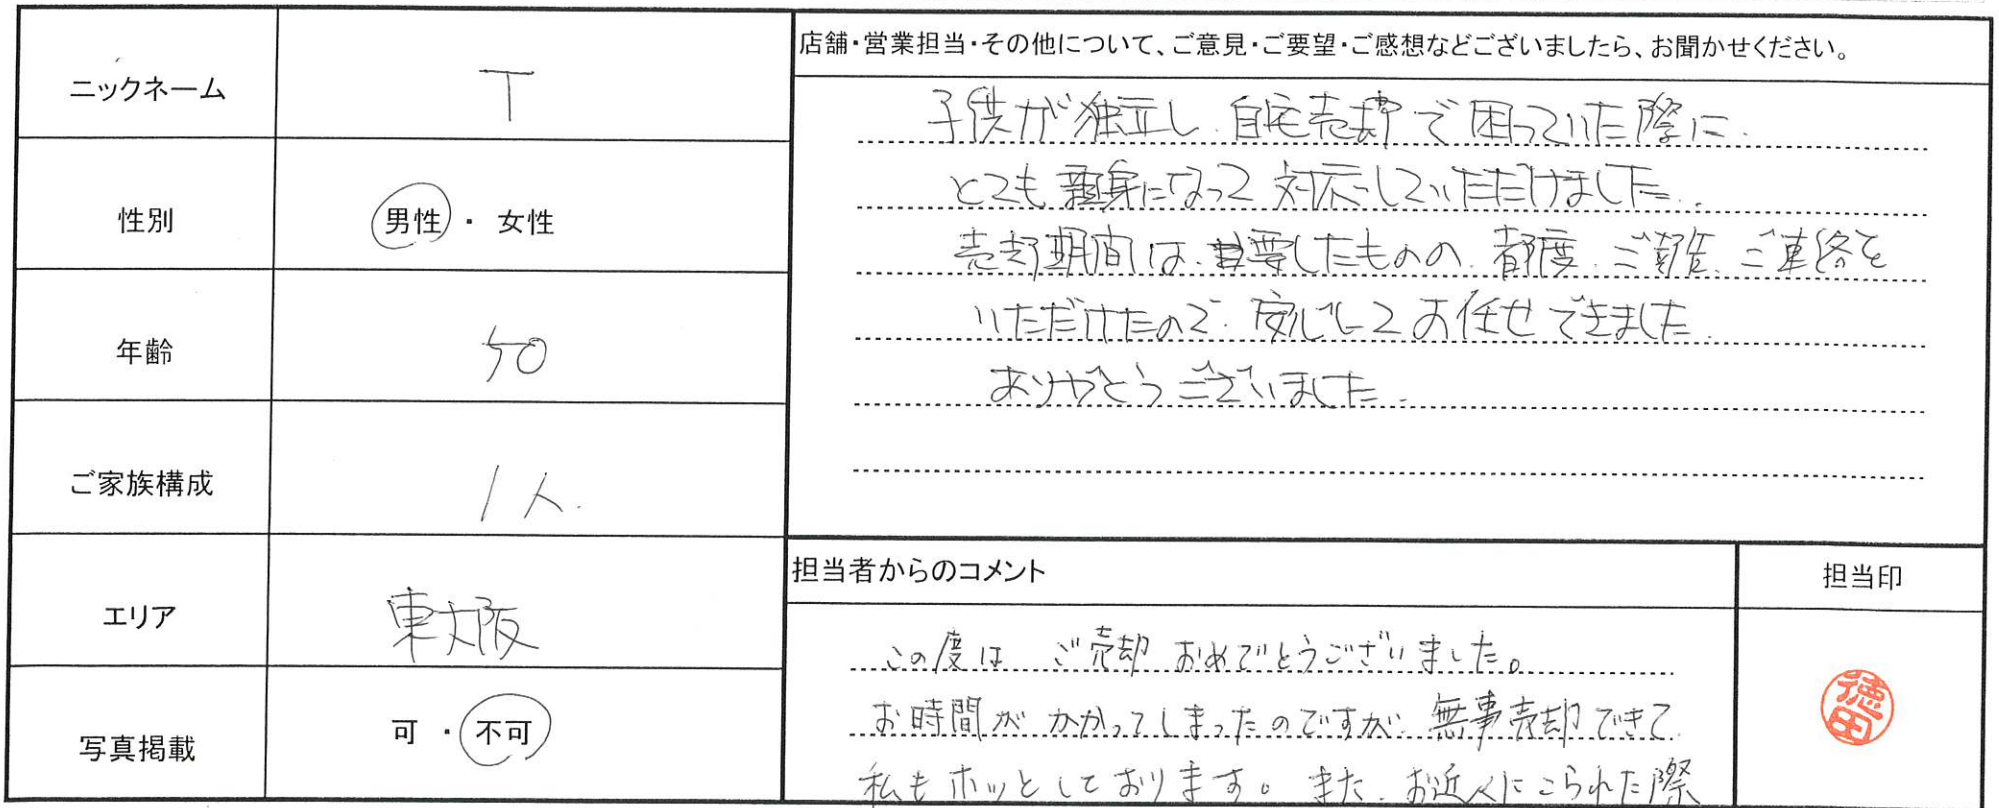 ニックネーム
T
性別
男性・女性
年齢
50
ご家族構成
1人.
エリア
東大阪
写真掲載
可・不可
店舗・営業担当・その他について、ご意見・ご要望・ご感想などございましたら、お聞かせください。
子供が独立し、自宅売却で困っていた際に、
とても親身になって対応していただけました。
売却期間は、要したものの、都度、ご報告、ご連絡を
いただけたので、安心してお任せできました。
ありがとうございました。
担当者からのコメント
この度は ご売却 おめでとうございました。
お時間が かかってしまったのですが、無事売却できて
私もホッとしております。また、お近くにこられた際
担当印
徳田